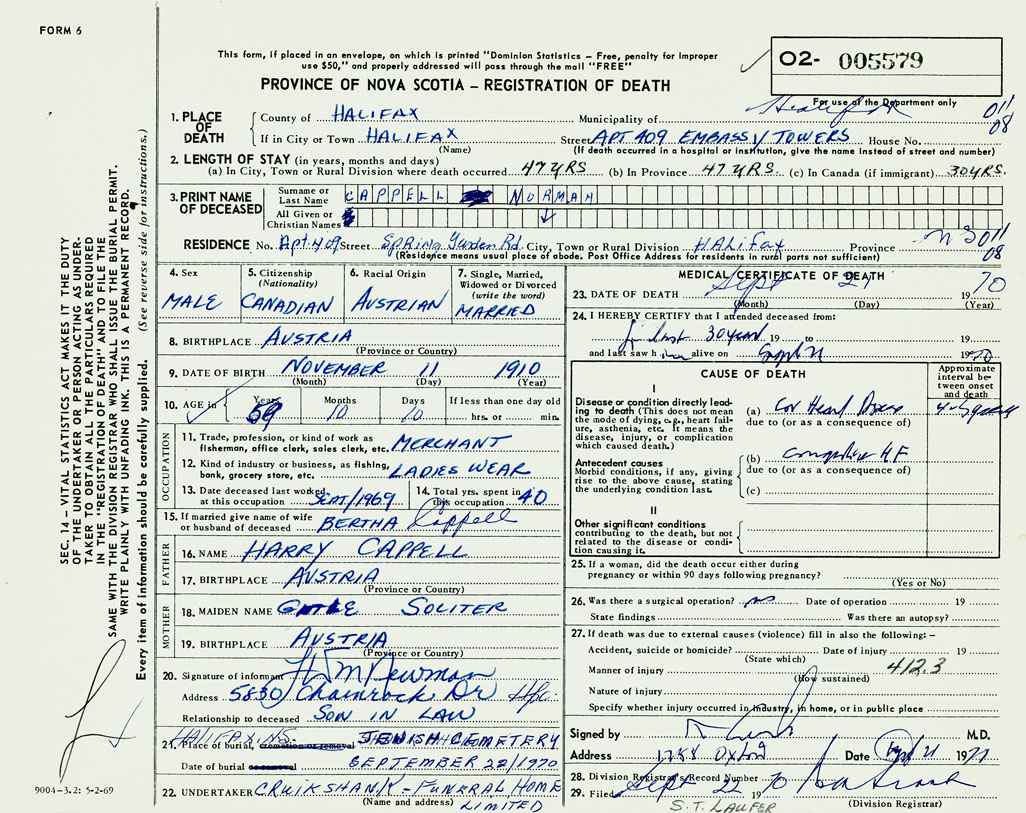 FORM 6
This form, if placed in an envelope, on which is printed "Dominion Statistics – Free, penalty for improper
use $50," and properly addressed will pass through the mail "FREE"
O2- 005579
PROVINCE OF NOVA SCOTIA – REGISTRATION OF DEATH
For use of the Department only
1. PLACE OF DEATH
County of HALIFAX Municipality of Halifax 011
If in City or Town HALIFAX Street APT 409 EMBASSY TOWERS House No. 08
(Name) (If death occurred in a hospital or institution, give the name instead of street and number)
2. LENGTH OF STAY (in years, months and days)
(a) In City, Town or Rural Division where death occurred 47 YRS (b) In Province 47 YRS. (c) In Canada (if immigrant) 30 YRS.
3. PRINT NAME OF DECEASED
Surname or Last Name CAPPELL NORMAN
All Given or Christian Names
RESIDENCE No. Apt 409 Street Spring Garden Rd. City, Town or Rural Division HALiFax Province N S 011
(Residence means usual place of abode. Post Office Address for residents in rural parts not sufficient) 08
4. Sex
MALE
5. Citizenship
(Nationality)
CANADIAN
6. Racial Origin
AUSTRIAN
7. Single, Married,
Widowed or Divorced
(write the word)
MARRIED
8. BIRTHPLACE AUSTRIA
(Province or Country)
9. DATE OF BIRTH NOVEMBER 11 1910
(Month) (Day) (Year)
10. AGE in Years Months Days If less than one day old
59 10 10 hrs. or min.
OCCUPATION
11. Trade, profession, or kind of work as
fisherman, office clerk, sales clerk, etc. MERCHANT
12. Kind of industry or business, as fishing,
bank, grocery store, etc. LADIES WEAR
13. Date deceased last worked
at this occupation SEPT/1969
14. Total yrs. spent in
this occupation 40
15. If married give name of wife
or husband of deceased BERTHA Cappell
FATHER
16. NAME HARRY CAPPELL
17. BIRTHPLACE AUSTRIA
(Province or Country)
MOTHER
18. MAIDEN NAME SOLITER
19. BIRTHPLACE AUSTRIA
(Province or Country)
20. Signature of informant H M Newman
Address 5830 Chainrock Dr Hfx.
Relationship to deceased SON IN LAW
HALIFAX. N.S.
21. Place of burial, cremation or removal JEWISH CEMETERY
Date of burial SEPTEMBER 22/1970
22. UNDERTAKER CRUIKSHANK – FUNERAL HOME
(Name and address) LIMITED
MEDICAL CERTIFICATE OF DEATH
23. DATE OF DEATH Sept 21 1970
(Month) (Day) (Year)
24. I HEREBY CERTIFY that I attended deceased from:
last 30 years 19 to 19
and last saw him alive on Sept 21 1970
CAUSE OF DEATH
Approximate
interval be-
tween onset
and death
I
Disease or condition directly lead-
ing to death (This does not mean
the mode of dying, e.g., heart fail-
ure, asthenia, etc. It means the
disease, injury, or complication
which caused death.)
(a) Cor Heart
due to (or as a consequence of)
Antecedent causes
Morbid conditions, if any, giving
rise to the above cause, stating
the underlying condition last.
(b) H F
due to (or as a consequence of)
(c)
II
Other significant conditions
contributing to the death, but not
related to the disease or condi-
tion causing it.
25. If a woman, did the death occur either during
pregnancy or within 90 days following pregnancy?
(Yes or No)
26. Was there a surgical operation? no Date of operation 19
State findings Was there an autopsy?
27. If death was due to external causes (violence) fill in also the following: –
Accident, suicide or homicide? Date of injury 19
(State which)
Manner of injury 412.3
(How sustained)
Nature of injury
Specify whether injury occurred in industry, in home, or in public place
Signed by M.D.
Address 1788 Oxford Date Sept 21 1971
28. Division Registrar's Record Number
29. Filed Sept 22 1970
(Division Registrar)
S.T. LAUFER
SEC. 14 – VITAL STATISTICS ACT MAKES IT THE DUTY
OF THE UNDERTAKER OR PERSON ACTING AS UNDER-
TAKER TO OBTAIN ALL THE PARTICULARS REQUIRED
IN THE "REGISTRATION OF DEATH" AND TO FILE THE
SAME WITH THE DIVISION REGISTRAR WHO SHALL ISSUE THE BURIAL PERMIT.
WRITE PLAINLY WITH UNFADING INK. THIS IS A PERMANENT RECORD.
Every item of information should be carefully supplied. (See reverse side for instructions.)
9004–3.2: 5-2-69